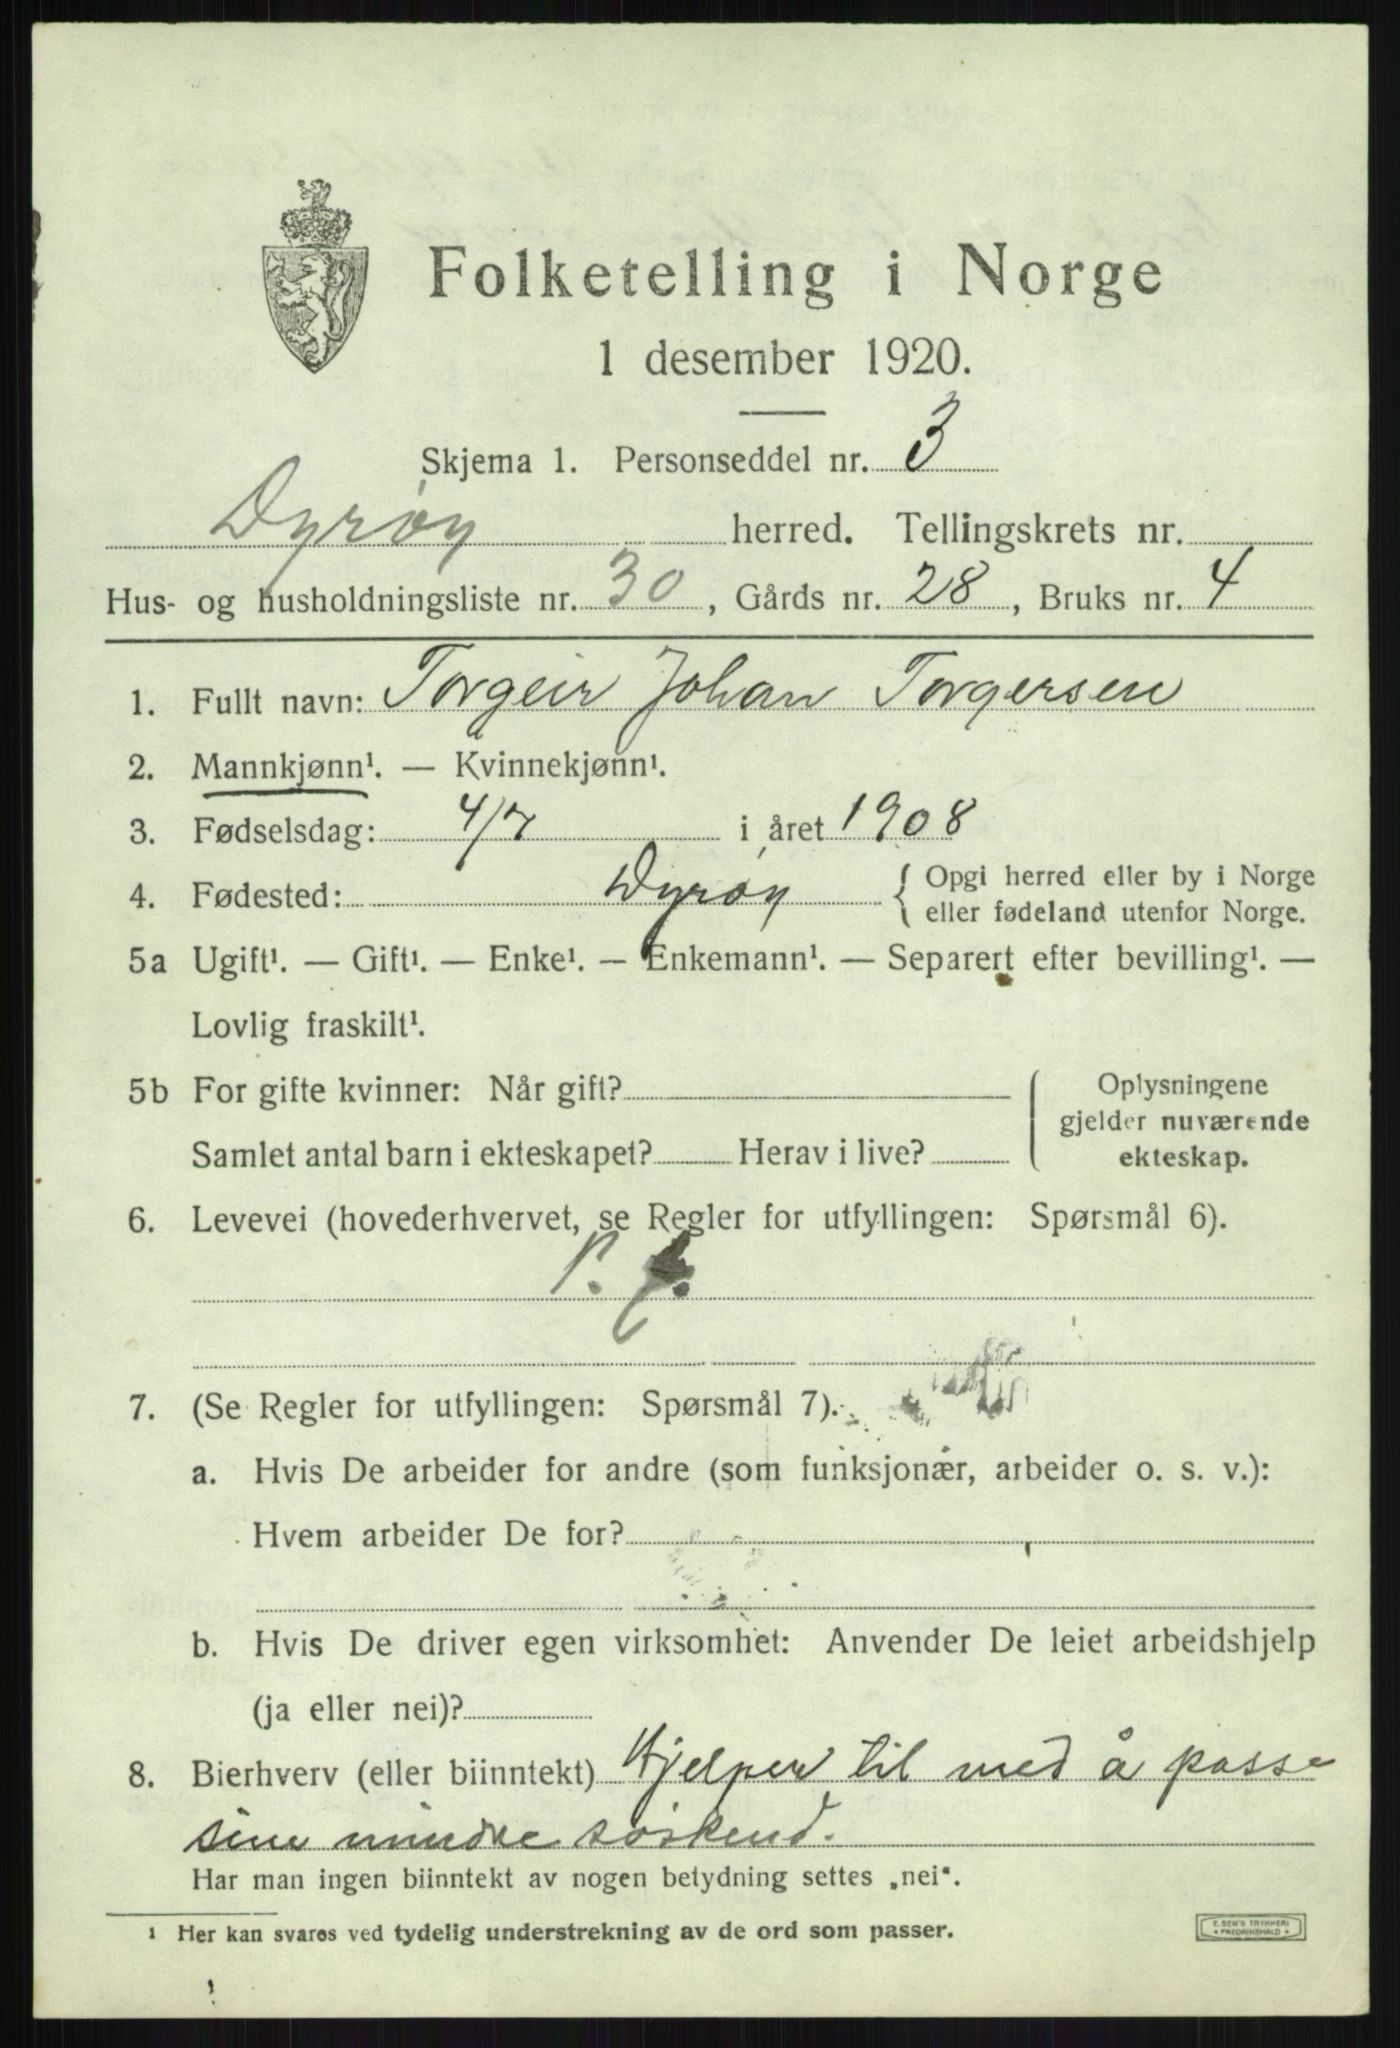 Folketelling i Norge
1 desember 1920.
Skjema 1. Personseddel nr. 3
Dyrøy herred. Tellingskrets nr.
Hus- og husholdningsliste nr. 30, Gårds nr. 28, Bruks nr. 4
1. Fullt navn: Torgeir Johan Torgersen
2. Mannkjønn¹. — Kvinnekjønn¹.
3. Fødselsdag: 4/7 i året 1908
4. Fødested: Dyrøy { Opgi herred eller by i Norge
eller fødeland utenfor Norge.
5a Ugift¹. — Gift¹. — Enke¹. — Enkemann¹. — Separert efter bevilling¹. —
Lovlig fraskilt¹.
5b For gifte kvinner: Når gift?
Samlet antal barn i ekteskapet? Herav i live?
Oplysningene
gjelder nuværende
ekteskap.
6. Levevei (hovederhvervet, se Regler for utfyllingen: Spørsmål 6).
7. (Se Regler for utfyllingen: Spørsmål 7).
a. Hvis De arbeider for andre (som funksjonær, arbeider o. s. v.):
Hvem arbeider De for?
b. Hvis De driver egen virksomhet: Anvender De leiet arbeidshjelp
(ja eller nei)?
8. Bierhverv (eller biinntekt) Hjelper til med å passe
sine mindre søskend.
Har man ingen biinntekt av nogen betydning settes „nei“.
¹ Her kan svares ved tydelig understrekning av de ord som passer.
E. SEM'S TRYKKERI
FREDRIKSHALD